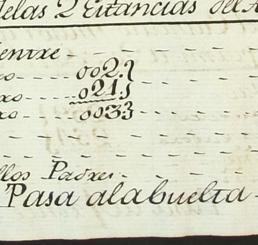 elas 2 Estancias del A
entre
xo - - - - 002.,
xo - - - - 021.,
xo - - - - 0033
llos Padres
Pasa ala buelta